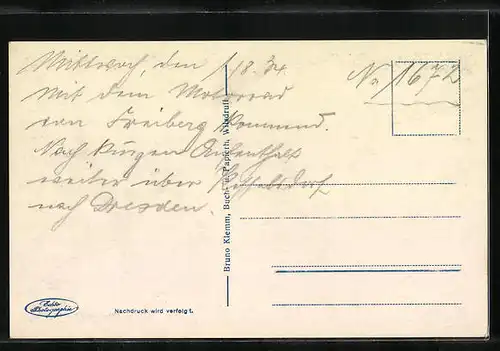 Mittwoch, den 1/8. 34.
Mit dem Motorrad
von Freiberg kommend.
Nach kurzen Aufenthalt
weiter über Kesselsdorf
nach Dresden.
No 1672
Bruno Klemm, Buch- u. Papierh. Wilsdruff
Echte
Photographie
Nachdruck wird verfolgt.